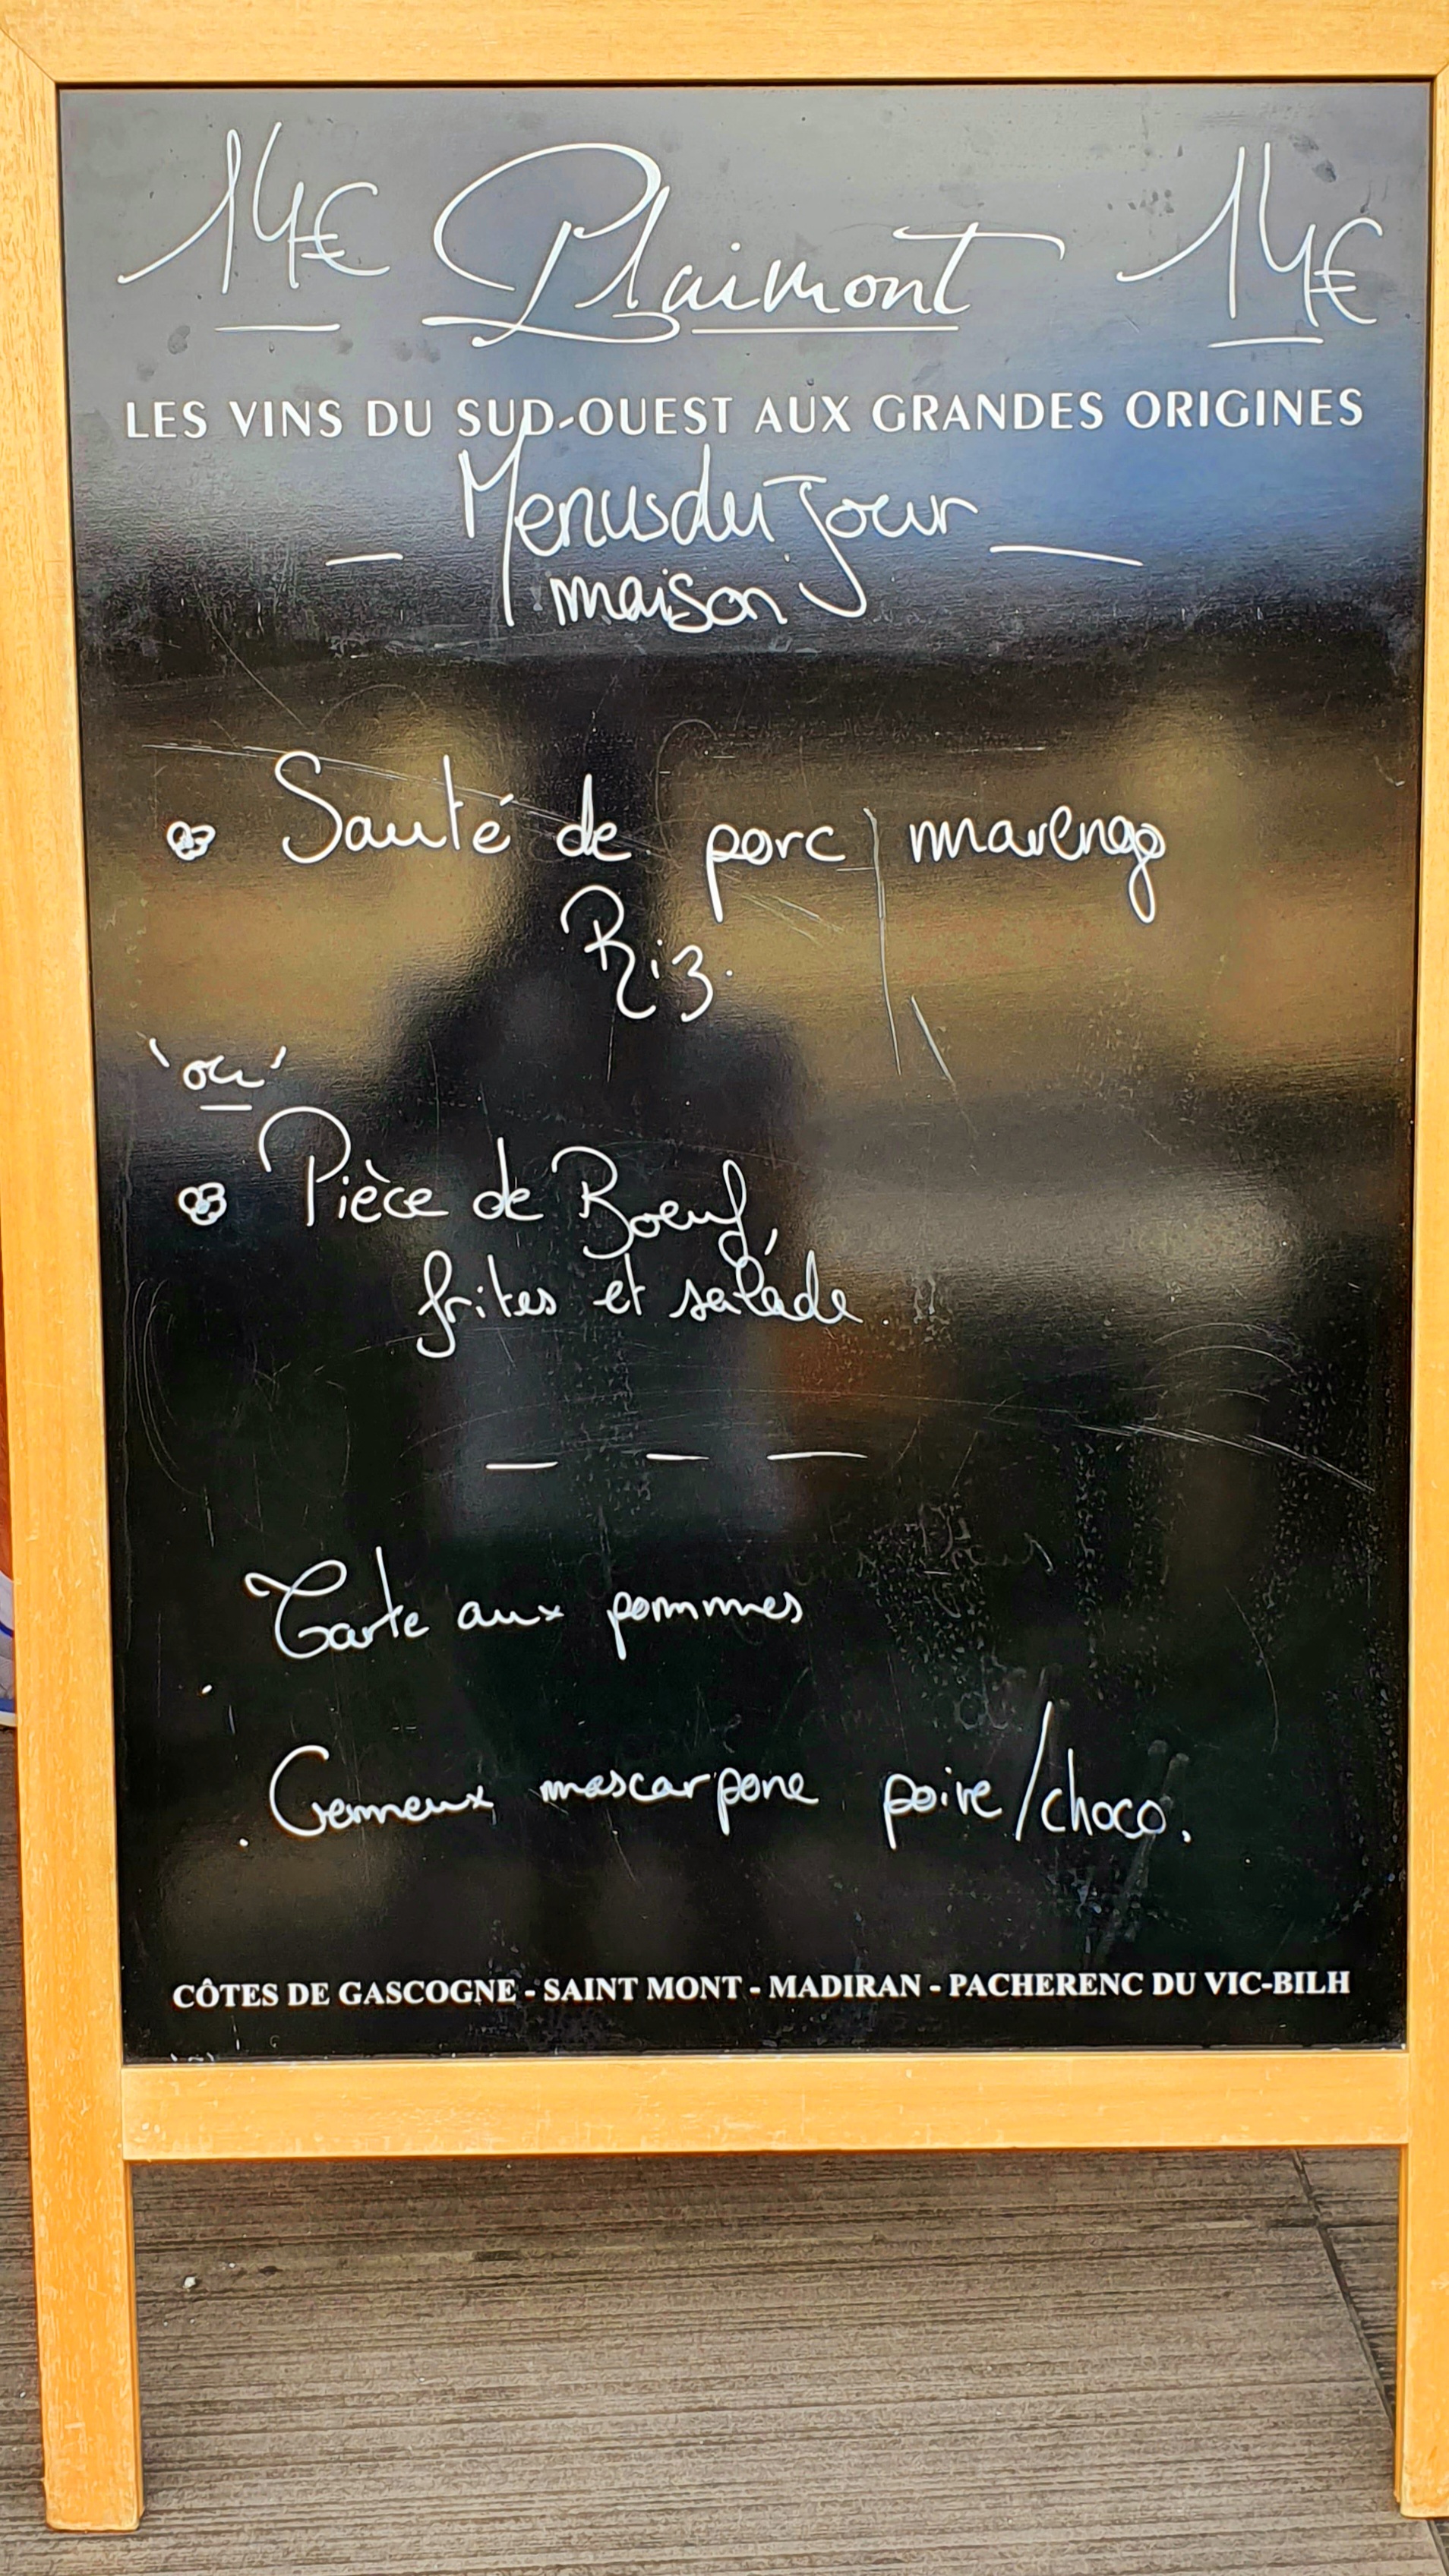 14€ Plaimont 14€
LES VINS DU SUD-OUEST AUX GRANDES ORIGINES
Menus du Jour
maison
Sauté de porc marengo
Riz.
'ou'
Pièce de Boeuf,
frites et salade
Tarte aux pommes
Cremeux mascarpone poire/choco.
CÔTES DE GASCOGNE - SAINT MONT - MADIRAN - PACHERENC DU VIC-BILH